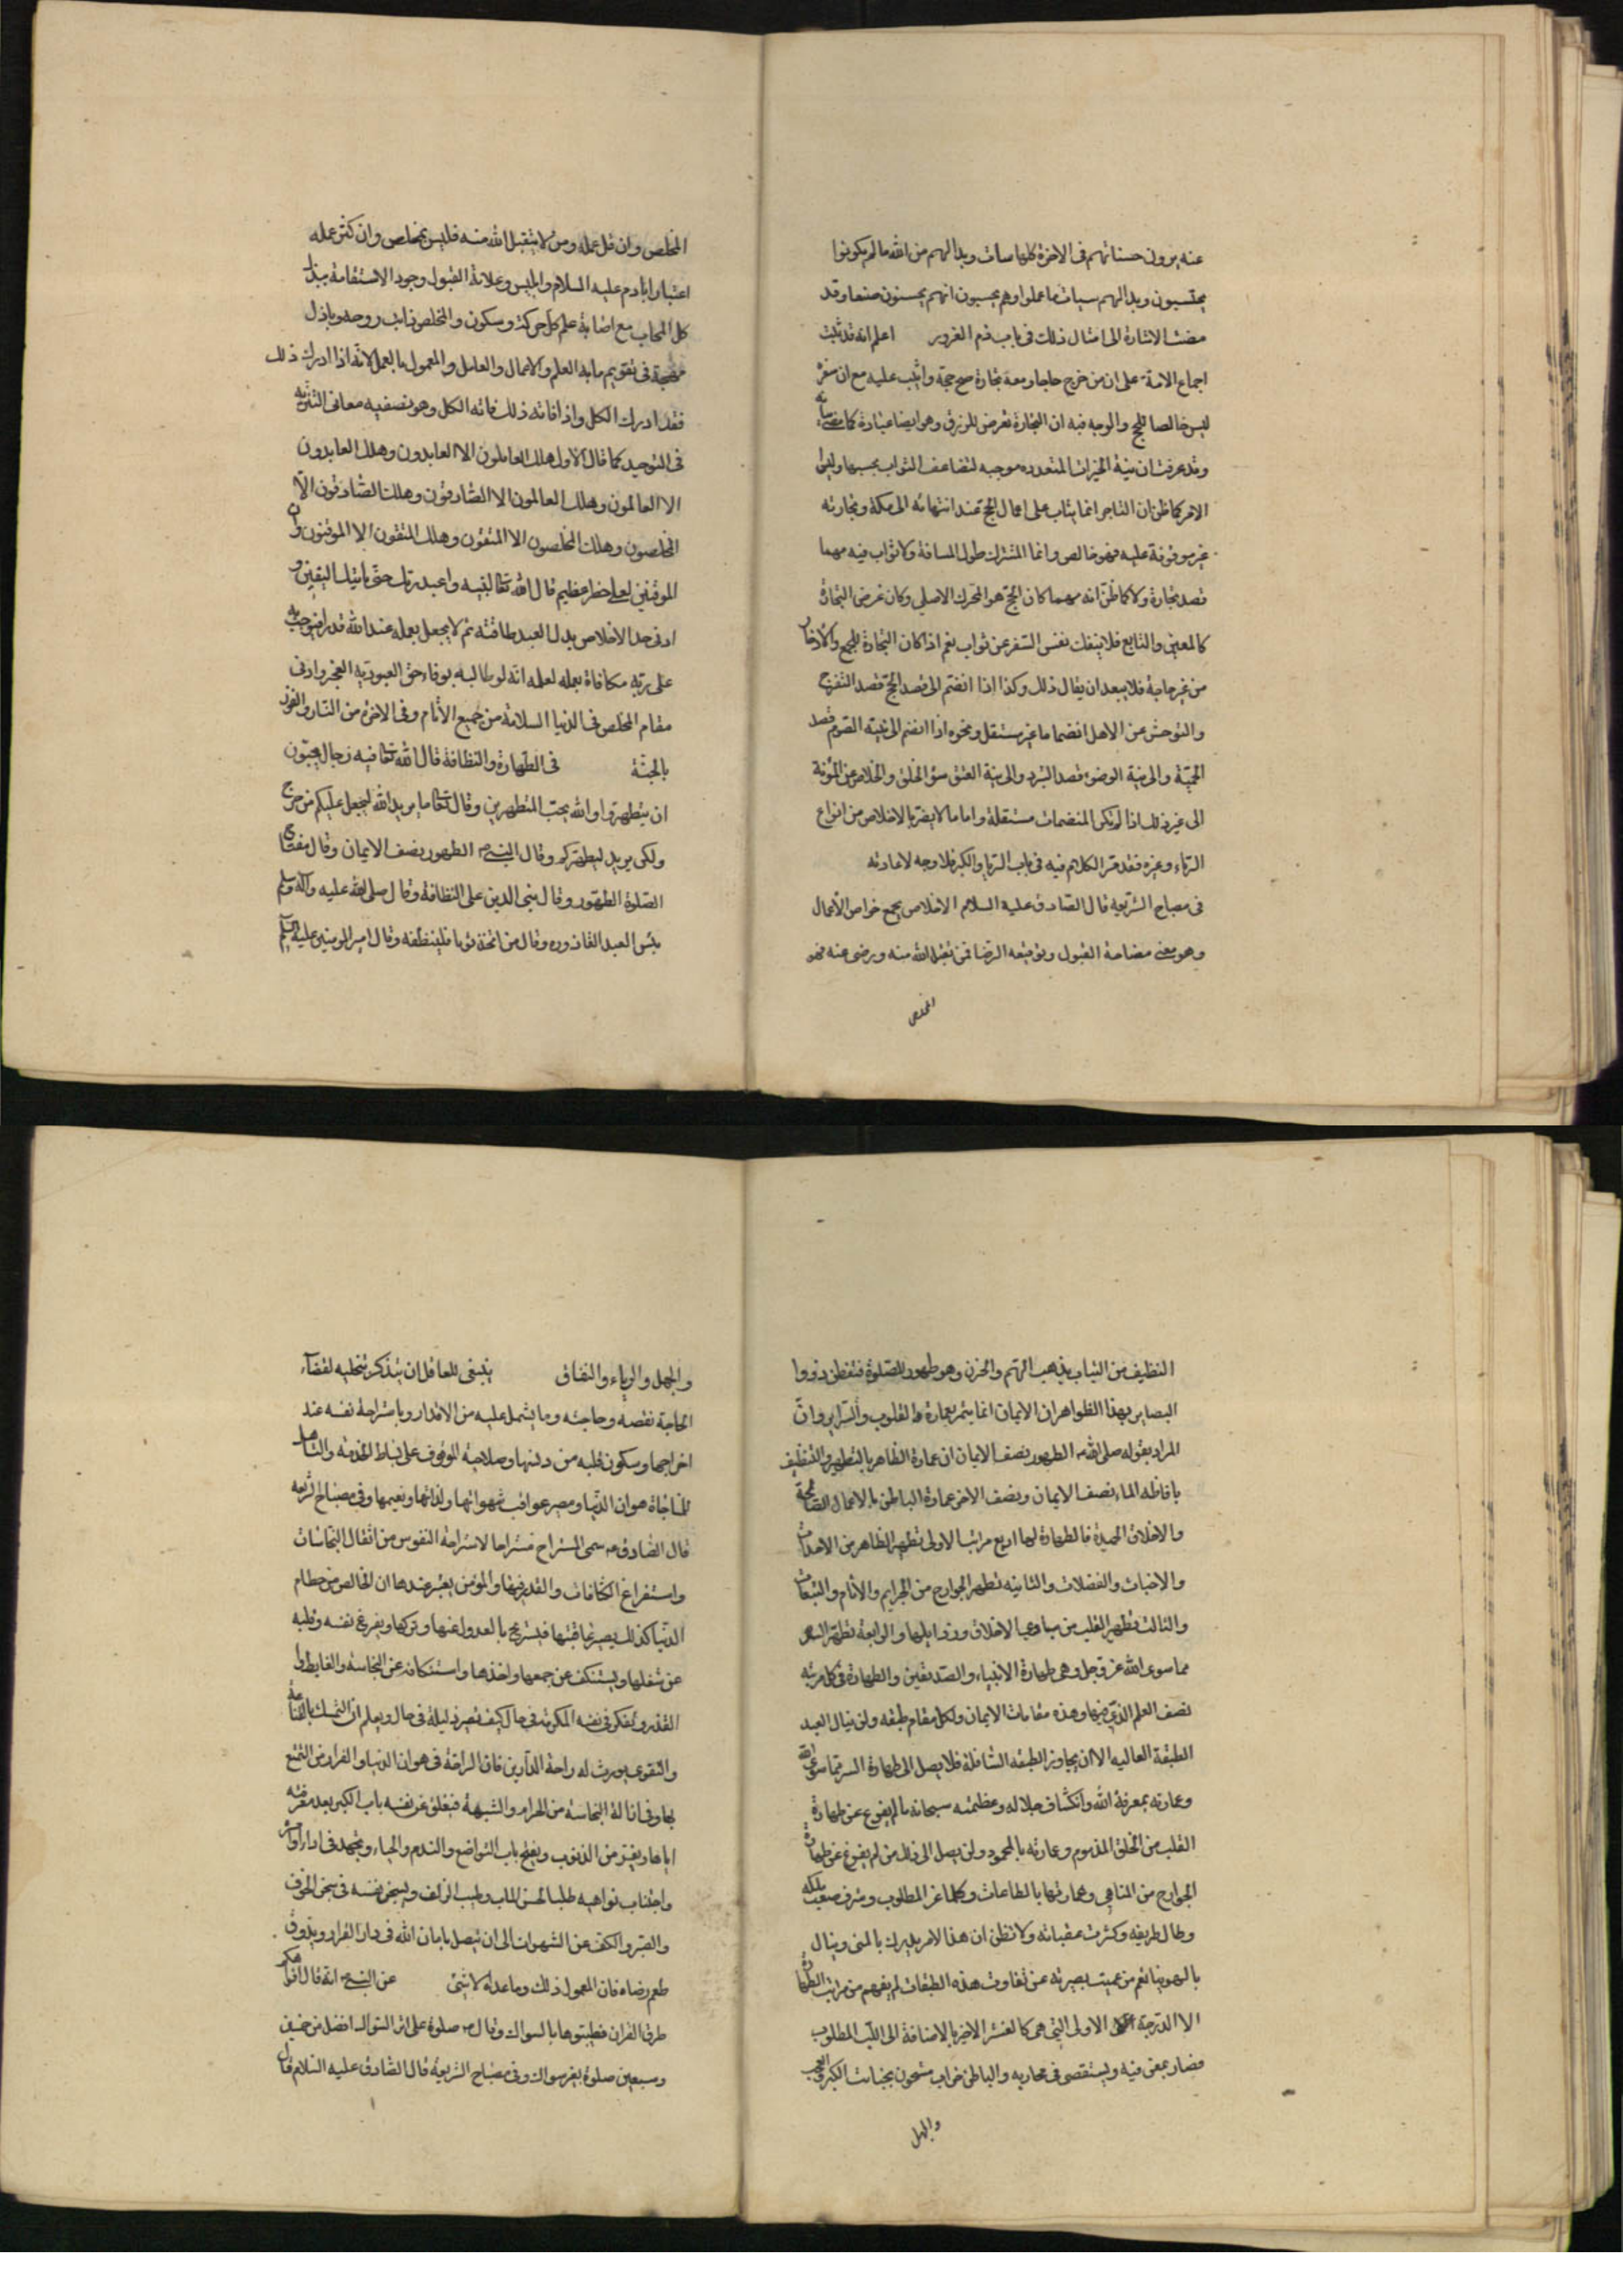 عنه يرون حسناتهم فى الاخرة كلها سيات وبدا لهم من الله ما لم يكونوا
يحتسبون وبدا لهم سيات ما عملوا وهم يحسبون انهم يحسنون صنعا وقد
مضت الاشارة الى امثال ذلك فى باب ذم الغرور اعلم انه قد ثبت
اجماع الامة على ان من خرج حاجا ومعه تجارة صح حجه واثيب عليه مع ان سفره
ليس خالصا للحج والوجه فيه ان التجارة تعرض للرزق وهو ايضا عبادة كما
وقد عرفت ان نية الخيرات المتعدده موجبه لتضاعف الثواب بحسبها وليس
الامر كما ظن ان التاجر انما يثاب على اعمال الحج عند انتهائه الى مكة وتجارته
غير موقوفة عليه فهو خالص وانما المشترك طول المسافة ولا ثواب فيه مهما
قصد تجارة ولا كما ظن انه مهما كان الحج هو المحرك الاصلى وكان غرض التجارة
كالمعين والتابع فلا ينفك نفس السفر عن ثواب نعم اذا كان التجارة للجمع والادخار
من غير حاجة فلا يبعد ان يقال ذلك وكذا اذا انضم الى قصد الحج قصد التفرج
والتوحش عن الاهل انضماما غير مستقل ونحوه اذا انضم الى نية الصوم قصد
الحمية والى نية الوضوء قصد التبرد والى نية العتق سوء الخلق والخلاص من المؤنة
الى غير ذلك اذا لم تكن المنضمات مستقلة واما ما لا يضر بالاخلاص من انواع
الرياء وغيره فقد مر الكلام فيه فى باب الريا والكبر فلا وجه لاعادته
فى مصباح الشريعه قال الصادق عليه السلام الاخلاص يجمع خواص الاعمال
وهو معنى مفتاحه القبول وتوقيعه الرضا فمن تقبل الله منه ورضى عنه فهو
المخلص
المخلص وان قل عمله ومن لا يتقبل الله منه فليس بمخلص وان كثر عمله
اعتبارا بادم عليه السلام وابليس وعلامة القبول وجود الاستقامة ببذل
كل المحاب مع اصابة علم كل حركة وسكون والمخلص ذائب روحه وباذل
مهجته فى تقويم ما به العلم والاعمال والعامل والمعمول بالعمل لانه اذا ادرك ذلك
فقد ادرك الكل واذا فاته ذلك فاته الكل وهو تصفيه معانى التنزيه
فى التوحيد كما قال الاول هلك العاملون الا العابدون وهلك العابدون
الا العالمون وهلك العالمون الا الصادقون وهلك الصادقون الا
المخلصون وهلك المخلصون الا المتقون وهلك المتقون الا الموقنون وان
الموقنين لعلى خطر عظيم قال الله تعالى لنبيه واعبد ربك حتى ياتيك اليقين و
ادنى حد الاخلاص بذل العبد طاقته ثم لا يجعل لعمله عند الله قدرا فيوجب به
على ربه مكافاة بعمله لعلمه انه لو طالبه بوفاء حق العبوديه لعجز وادنى
مقام المخلص فى الدنيا السلامة من جميع الاثام وفى الاخرة من النار والفوز
بالجنة فى الطهارة والنظافة قال الله تعالى فيه رجال يحبون
ان يتطهروا والله يحب المتطهرين وقال تعالى ما يريد الله ليجعل عليكم من حرج
ولكن يريد ليطهركم وقال النبى الطهور نصف الايمان وقال مفتاح
الصلوة الطهور وقال بنى الدين على النظافة وقال صلى الله عليه واله وسلم
بئس العبد القاذوره وقال من اتخذ ثوبا فلينظفه وقال امير المومنين عليه السلم
النظيف من الثياب يذهب الهم والحزن وهو طهور للصلوة فتفطن ذووا
البصاير بهذا الظواهر ان الايمان انما يتم بعمارة القلوب والسراير وان
المراد بقوله صلى الله الطهور نصف الايمان ان عمارة الظاهر بالتطهير والتنظيف
بافاظه الماء نصف الايمان ونصف الاخر عمارة الباطن بالاعمال الصالحة
والاخلاق الحميدة فالطهارة لها اربع مراتب الاولى تطهير الظاهر من الاحداث
والاخباث والفضلات والثانيه تطهير الجوارح من الجرايم والاثام والتبعات
والثالث تطهير القلب من مساوى الاخلاق ورذايلها والرابعة تطهير السر
مما سوى الله عز وجل وهى طهارة الانبياء والصديقين والطهارة فى كل مرتبه
نصف العلم الذى فيها وهذه مقامات الايمان ولكل مقام طبقه ولن ينال العبد
الطبقة العاليه الا ان يجاوز الطبقه السافلة فلا يصل الى طهارة السر مما سوى الله
وعمارته بمعرفة الله وانكشاف جلاله وعظمته سبحانه ما لم يفرغ عن طهارة
القلب من الخلق المذموم وعمارته بالمحمود ولن يصل الى ذلك من لم يفرغ عن طهارة
الجوارح من المناهى وعمارتها بالطاعات وكلما عز المطلوب وشرف صعب مسلكه
وطال طريقه وكثرت عقباته ولا تظن ان هذا الامر يدرك بالمنى وينال
بالهوينا نعم من عميت بصيرته عن تفاوت هذه الطبقات لم يفهم من مراتب الطهارة
الا الدرجة الاولى التى هى كالقشر الاخير بالاضافة الى اللب المطلوب
فصار يمعن فيه ويستقصى فى مجاريه والباطن خراب مشحون بخبائث الكبر والعجب
والجهل
والجهل والرياء والنفاق ينبغى للعاقل ان يتذكر بتخليه لقضاء
الحاجة نقصه وحاجته وما يشمل عليه من الاقذار وباستراحة نفسه عند
اخراجها وسكون قلبه من دنسها وصلاحيته للوقوف على بساط الخدمة والتاهل
للمناجاة هوان الدنيا ومصير عواقب شهواتها ولذاتها ونعيمها وفى مصباح الشريعه
قال الصادق سمى المستراح مستراحا لاستراحة النفوس من اثقال النجاسات
واستفراغ الكثافات والقذر فيها والمؤمن يعتبر عندها ان الخالص من حطام
الدنيا كذلك يصير عاقبتها فيستريح بالعدول عنها وتركها ويفرغ نفسه وقلبه
عن شغلها ويستنكف عن جمعها واخذها واستنكافه عن النجاسة والغايط وا
القذر ويفكر فى نفسه المكرمة فى حال كيف تصير ذليلة فى حال ويعلم ان التمسك بالقناعة
والتقوى يورث له راحة الدارين فان الراحة فى هوان الدنيا والفراغ من التمتع
بها وفى ازالة النجاسة من الحرام والشبهة فيغلق عن نفسه باب الكبر بعد معرفته
اياها ويفر من الذنوب ويفتح باب التواضع والندم والحياء ويجتهد فى اداء اوامره
واجتناب نواهيه طلبا لحسن الماب وطيب الزلف ويسجن نفسه فى سجن الخوف
والصبر والكف عن الشهوات الى ان يتصل بامان الله فى دار القرار ويذوق
طعم رضاه فان المعمول ذلك وما عداه لا شئ عن النبى انه قال افواهكم
طرق القران فطيبوها بالسواك وقال صلوة على اثر السواك افضل من خمس
وسبعين صلوة بغير سواك وفى مصباح الشريعه قال الصادق عليه السلام قال